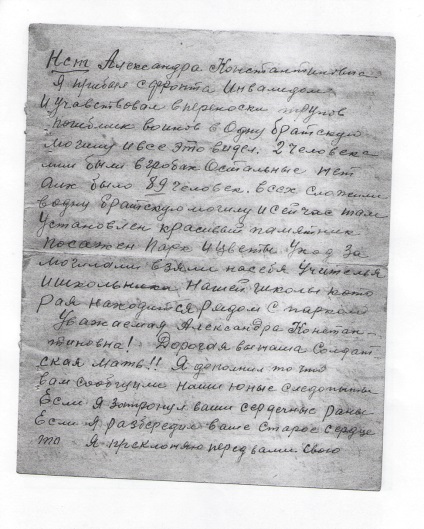 Нет Александра Константиновна
Я прибыл с фронта Инвалидом
и учавствовал в переноски трупов
погибших воинов в Одну братскую
могилу и все это видел. 2 человека
были в гробах Остальные нет
Их было 89 человек. всех сложили
в одну братскую могилу и сейчас там
Установлен красивый памятник
Посажен Парк и Цветы Уход за
могилами взяли на себя Учителя
и школьники нашей школы кото
рая находится рядом с парком
Уважаемая Александра Констан-
тиновна! Дорогая вы наша Солдат
ская Мать!! Я дополнил то что
вам сообщили наши юные следопыты
Если Я затронул ваши сердечные раны
Если Я разбередил ваше старое сердце
то Я преклоняю перед вами свою